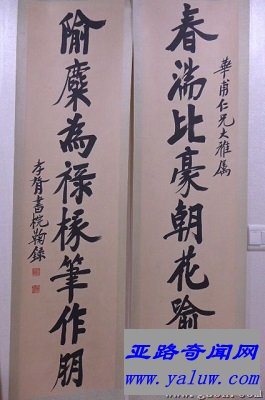 春湍比豪朝花踰
華甫仁兄大雅屬
隃麋為祿椽筆作朋
孝臧書梡鞠錄
亚路奇闻网
www.yaluw.com